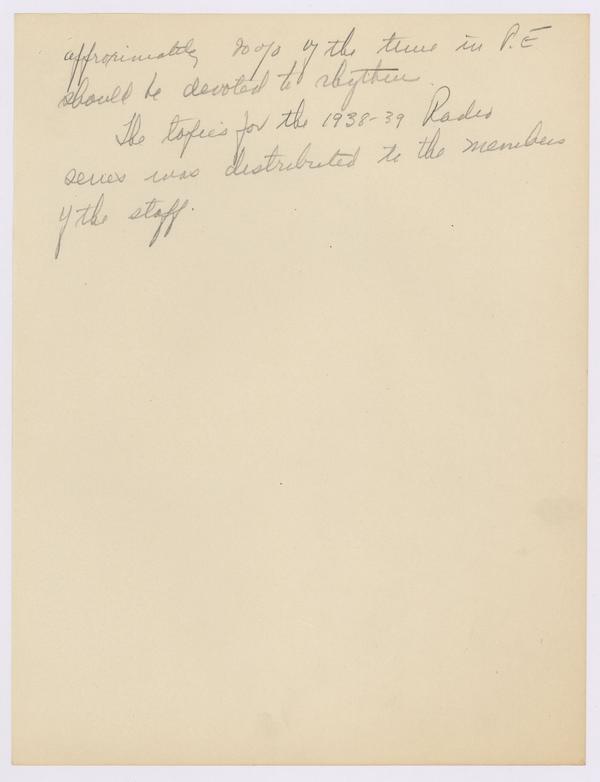 approximately 20% of the time in P.E
should be devoted to rhythm.
The topics for the 1938-39 Radio
series was distributed to the members
of the staff.